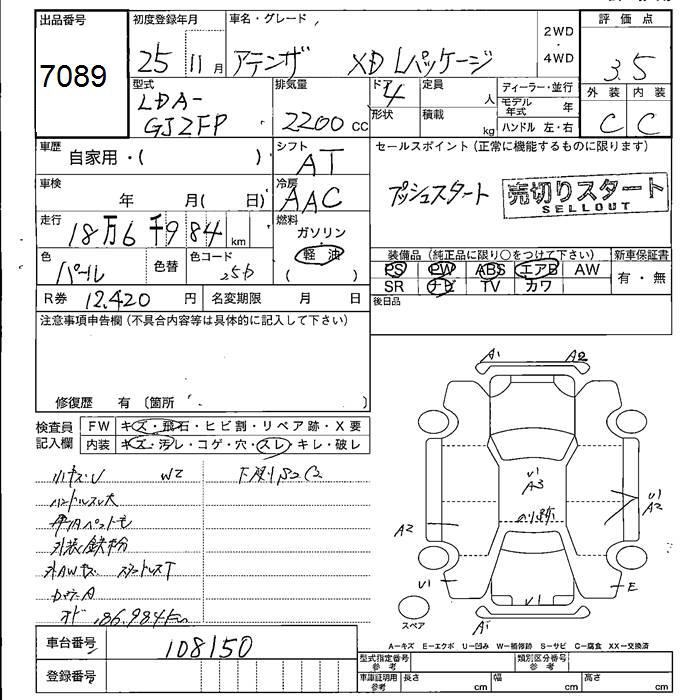 出品番号
7089
初度登録年月
25 11月
車名・グレード
アテンザ XD Lパッケージ
2WD
・
4WD
評価点
3.5
外装 内装
C C
型式
LDA-
GJ2FP
排気量
2200 cc
ドア
4
形状
定員
人
積載
kg
ディーラー・並行
モデル年式 年
ハンドル 左・右
車歴
自家用・( )
シフト
AT
セールスポイント(正常に機能するものに限ります)
プッシュスタート
売切りスタート
SELLOUT
車検
年 月( 日)
冷房
AAC
走行
18万6千984 km
燃料
ガソリン
軽油
( )
色
パール
色替
色コード
25D
装備品(純正品に限り○をつけて下さい)
PS PW ABS エアB AW
SR ナビ TV カワ
新車保証書
有・無
R券 12,420 円
名変期限 月 日
後日品
注意事項申告欄(不具合内容等は具体的に記入して下さい)
修復歴 有 〔箇所 〕
検査員
記入欄
FW キズ・飛石・ヒビ割・リペア跡・X要
内装 キズ・汚レ・コゲ・穴・スレ・キレ・破レ
小キズ・U W2 下廻りS2C2
ハンドルスレ大
外装鉄粉
外AWキズ スタッドレスT
186,984km
A1 A2
U1
A3
のり跡
U1
A2
A2
U1
E
U1
A1
スペア
A-キズ E-エクボ U-凹み W-補修跡 S-サビ C-腐食 XX-交換済
車台番号 108150
登録番号
型式指定番号
参考
類別区分番号
参考
車庫証明用
参考
長さ cm
幅 cm
高さ cm